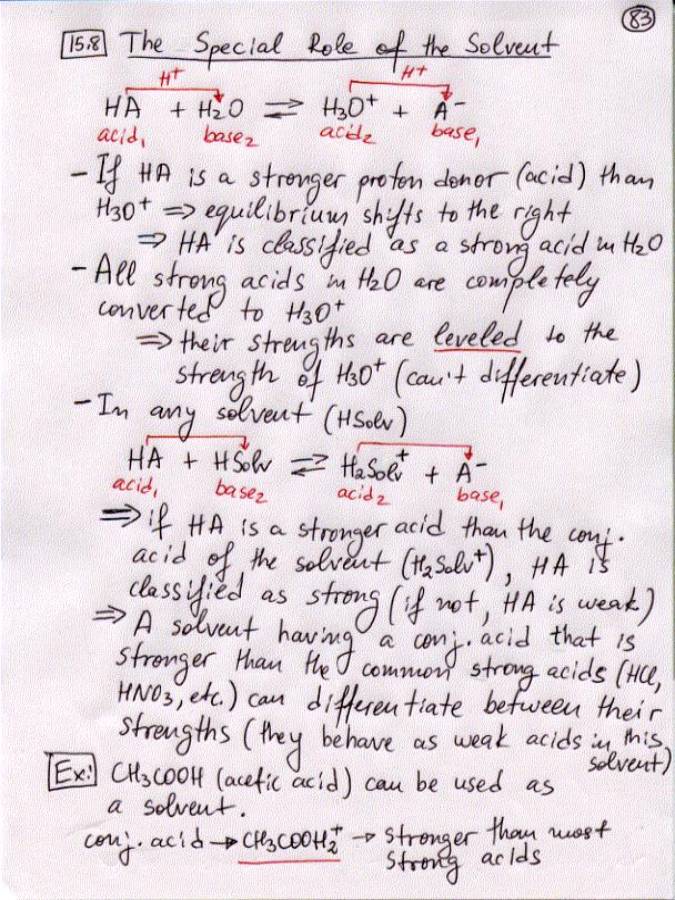 83
15.8 The Special Role of the Solvent
H+ H+
HA + H2O ⇌ H3O+ + A-
acid1 base2 acid2 base1
- If HA is a stronger proton donor (acid) than
H3O+ => equilibrium shifts to the right
=> HA is classified as a strong acid in H2O
- All strong acids in H2O are completely
converted to H3O+
=> their strengths are leveled to the
strength of H3O+ (can't differentiate)
- In any solvent (HSolv)
HA + HSolv ⇌ H2Solv+ + A-
acid1 base2 acid2 base1
=> if HA is a stronger acid than the conj.
acid of the solvent (H2Solv+), HA is
classified as strong (if not, HA is weak)
=> A solvent having a conj. acid that is
stronger than the common strong acids (HCl,
HNO3, etc.) can differentiate between their
strengths (they behave as weak acids in this
solvent)
Ex: CH3COOH (acetic acid) can be used as
a solvent.
conj. acid → CH3COOH2+ → stronger than most
strong acids